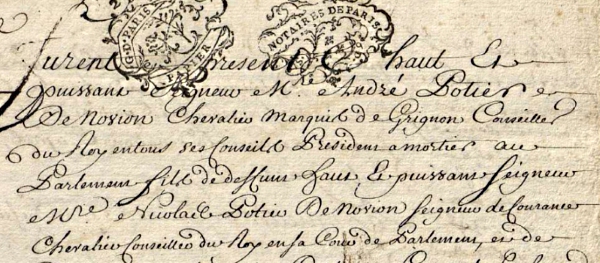 GD. PARIS
PAPIER
NOTAIRES DE PARIS
furent presens haut Et
puissant Seigneur Mre André Potier
De Novion Chevalier Marquis de Grignon Conseiller
du Roy en tous ses Conseils President a mortier au
Parlement fils de deffunt haut Et puissant Seigneur
Mre Nicolas Potier De Novion Seigneur de Courance
Chevalier Conseiller du Roy en sa Cour de Parlement, et de